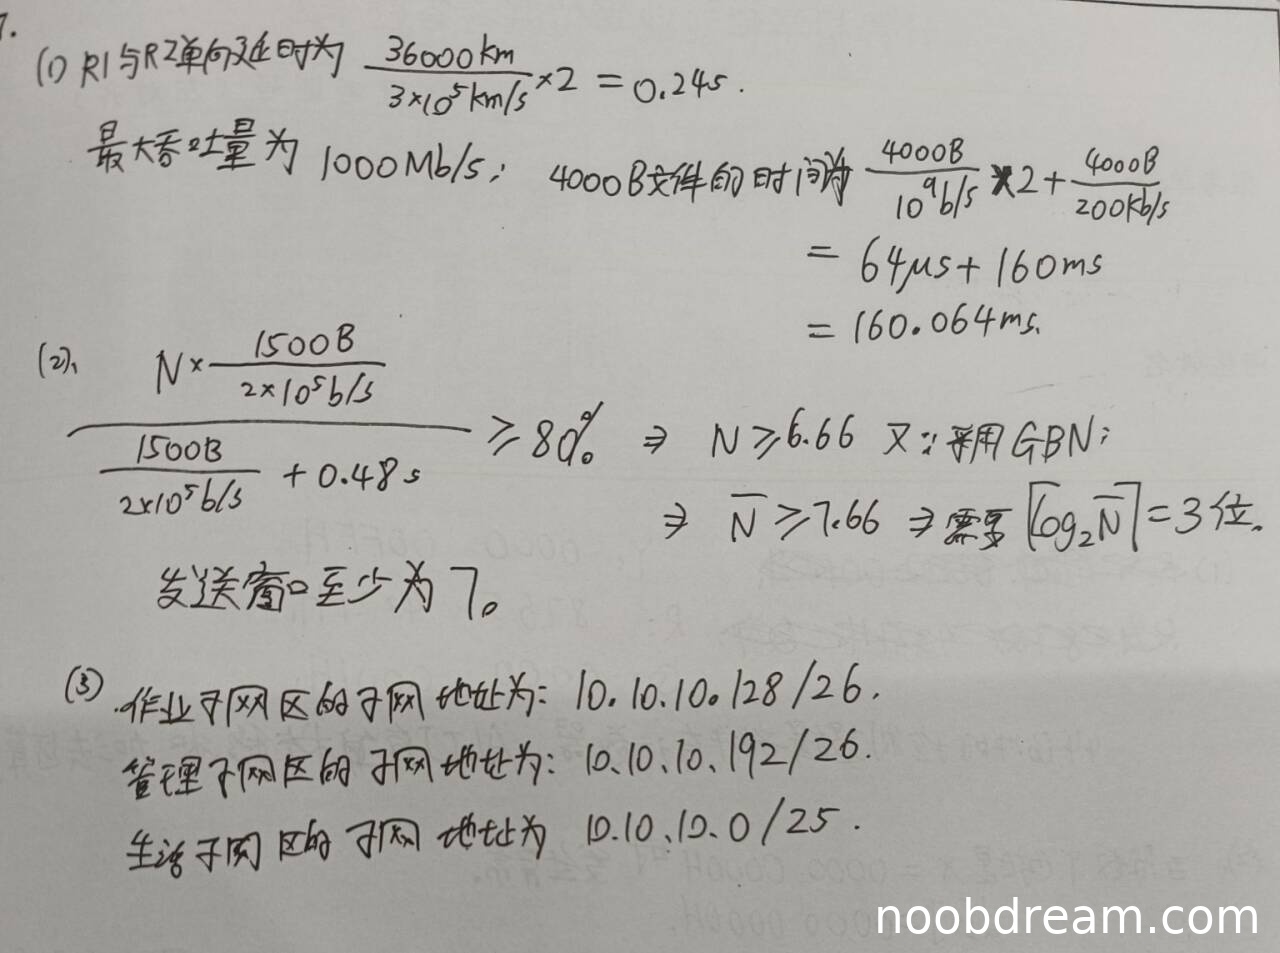 7.
(1) R1与R2单向延时为 36000km / 3×10⁵km/s ×2 = 0.24s.
最大吞吐量为 1000Mb/s; 4000B文件的时间为 4000B / 10⁹b/s ×2 + 4000B / 200Kb/s
= 64μs + 160ms
= 160.064ms.
(2). N× 1500B / 2×10⁵b/s / (1500B / 2×10⁵b/s + 0.48s) ≥ 80% ⇒ N≥6.66 又∵采用GBN;
⇒ N̅ ≥7.66 ⇒需要⌈log₂N̅⌉=3位.
发送窗口至少为7。
(3) 作业子网区的子网地址为: 10.10.10.128/26.
管理子网区的子网地址为: 10.10.10.192/26.
生活子网区的子网地址为 10.10.10.0/25.
noobdream.com